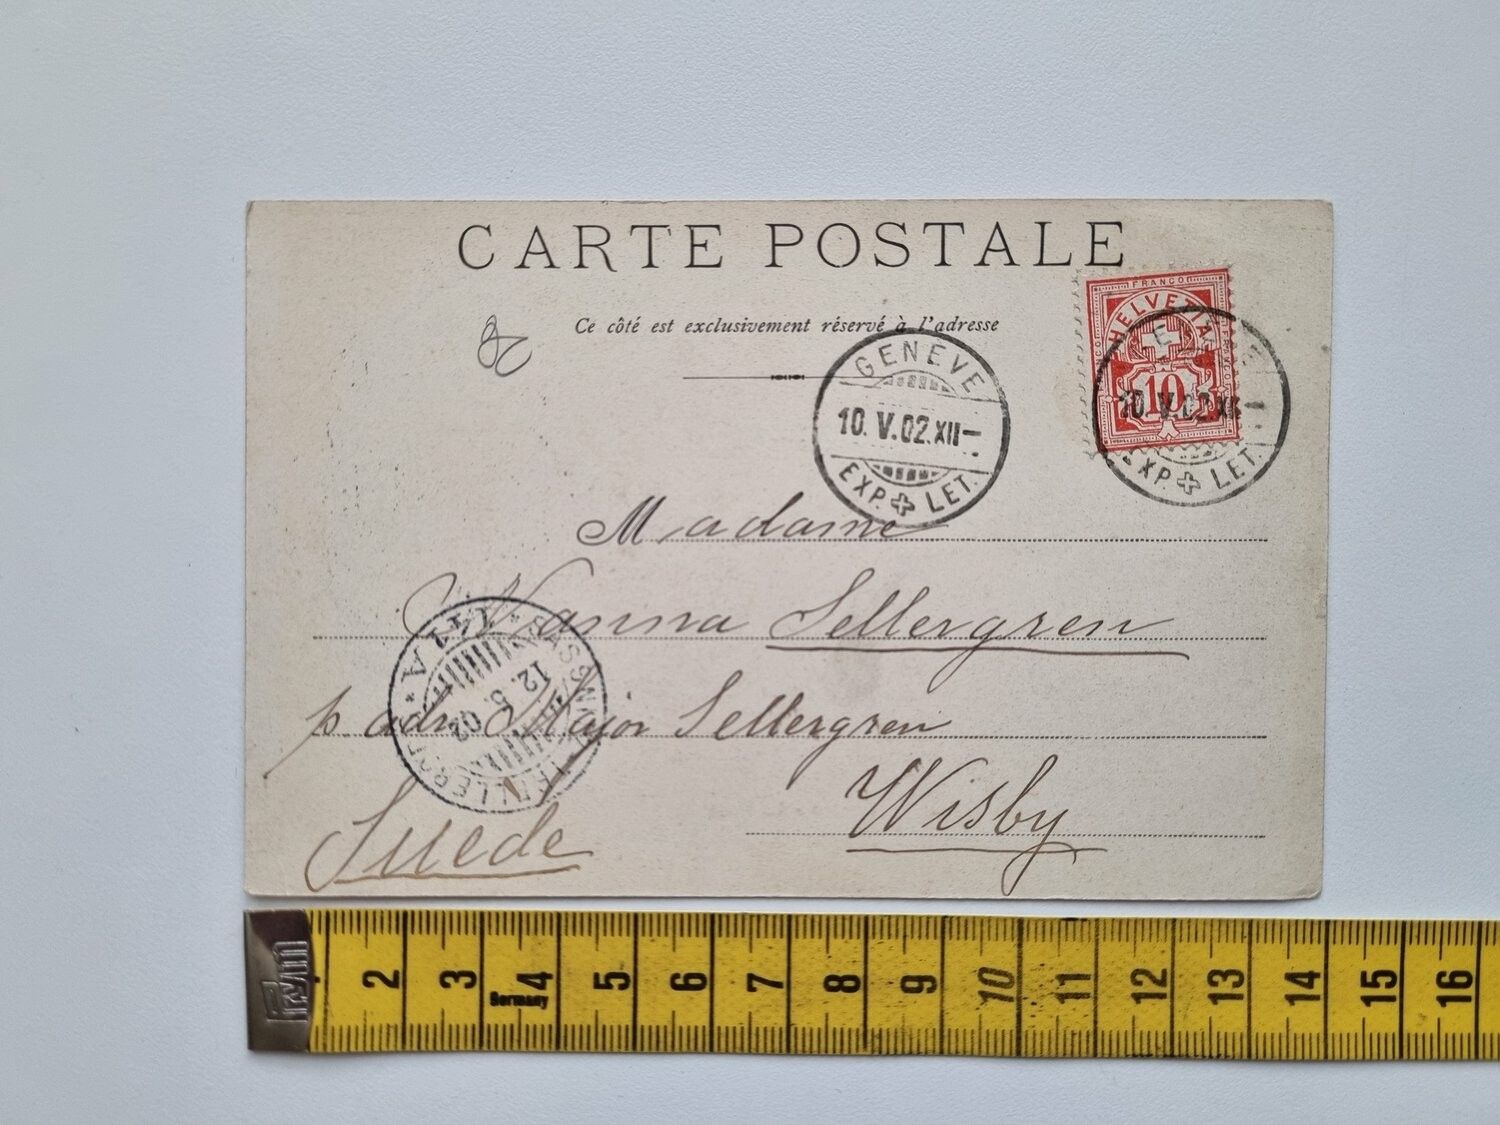 CARTE POSTALE
Ce côté est exclusivement réservé à l'adresse
FRANCO
HELVETIA
10
GENEVE
10. V. 02. XII–
EXP. LET.
10. V. 02. XII–
EXP. LET.
Madame
Nanna Sellergren
p. adr. Major Sellergren
Wisby
Suède
SASSNITZ
12. 5. 02
TRELLEBORG
Prym
2 3 4 5 6 7 8 9 10 11 12 13 14 15 16
Germany